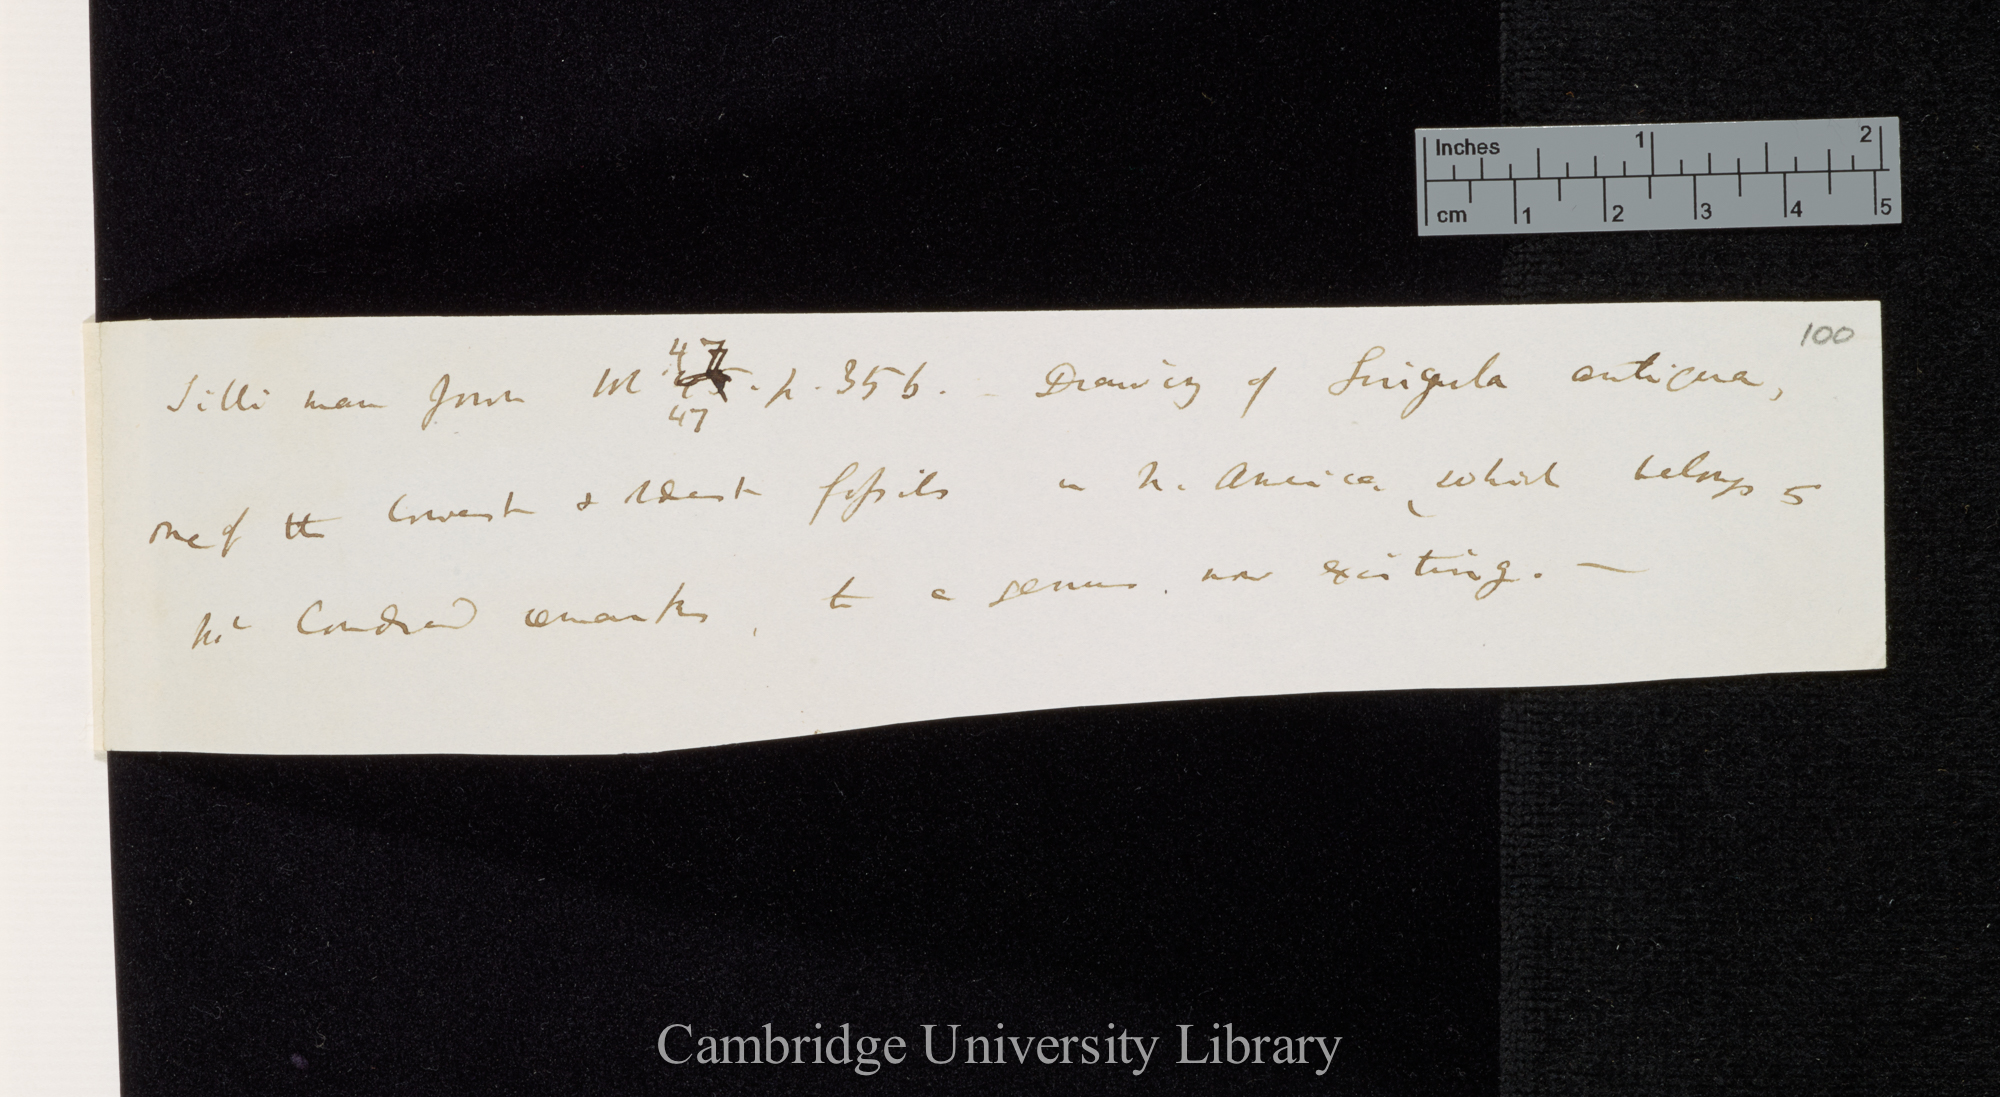 100
Silliman Journ Vol 47 45. p. 356. — Drawing of Lingula antiqua,
47
one of the lowest & oldest fossils in N. America, which belongs, as
Mr Condrad remarks, to a genus now existing. —
Inches 1 2
cm 1 2 3 4 5
Cambridge University Library